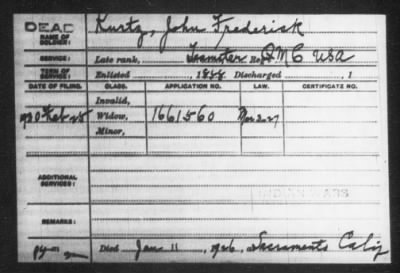 DEAD
NAME OF SOLDIER: Kurtz, John Frederick
SERVICE: Late rank, Teamster Reg't QMC USA
TERM OF SERVICE: Enlisted 1888 Discharged , 1
DATE OF FILING. CLASS. APPLICATION NO. LAW. CERTIFICATE NO.
Invalid,
Widow, 1661560
Minor,
ADDITIONAL SERVICES:
INDIAN WARS
REMARKS:
Died Jan 11, 1926, Sacramento Calif